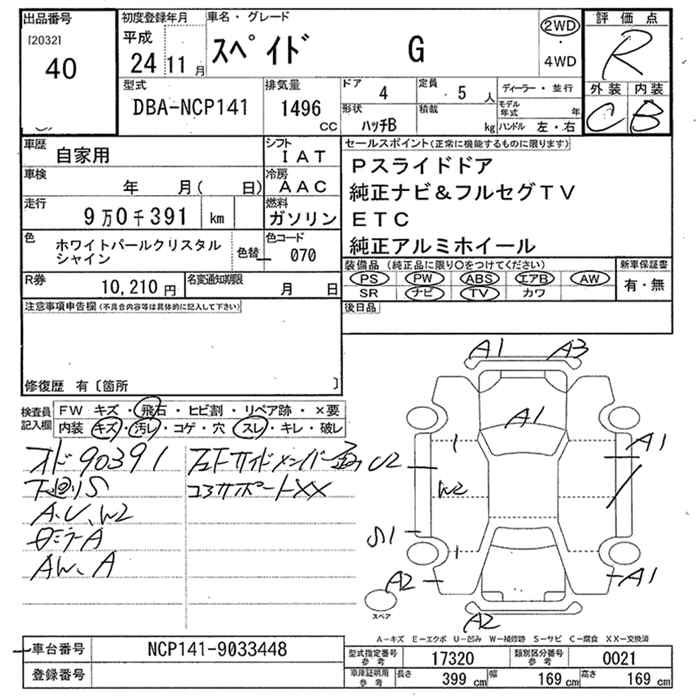 出品番号 初度登録年月 車名・グレード 2WD 評価点
[2032] 平成 スペイド G ・ R
40 24 11 月 4WD
型式 排気量 ドア 4 定員 5 人 ディーラー・並行 外装 内装
DBA-NCP141 1496 cc 形状 ハッチB 積載 kg モデル年式 年 C B
ハンドル 左・右
車歴 自家用 シフト IAT セールスポイント(正常に機能するものに限ります)
車検 年 月( 日) 冷房 AAC Pスライドドア
走行 9万0千391 km 燃料 ガソリン 純正ナビ&フルセグTV
ETC
色 ホワイトパールクリスタル 色替 色コード 070 純正アルミホイール
シャイン
装備品(純正品に限り○をつけてください) 新車保証書
R券 10,210 円 名変通知期限 月 日 PS PW ABS エアB AW 有・無
SR ナビ TV カワ
注意事項申告欄(不具合内容等は具体的に記入して下さい) 後日品
修復歴 有〔箇所 〕
検査員記入欄 FW キズ・飛石・ヒビ割・リペア跡・×要
内装 キズ・汚レ・コゲ・穴・スレ・キレ・破レ
オド90391
下廻りS
コアサポートXX
A、U、W2
AW、A
A1 A3
A1
A1
U2
W2
S1
A2 A1
A2
スペア
A-キズ E-エクボ U-凹み W-補修跡 S-サビ C-腐食 XX-交換済
車台番号 NCP141-9033448 型式指定番号 参考 17320 類別区分番号 参考 0021
登録番号 車庫証明用 参考 長さ 399 cm 幅 169 cm 高さ 169 cm